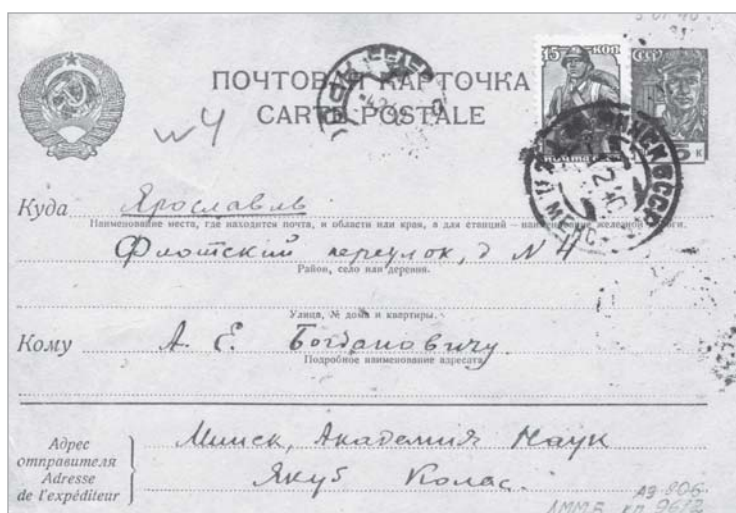 ПОЧТОВАЯ КАРТОЧКА
CARTE POSTALE
15 КОП
ПОЧТА СССР
СССР
5 К
МИНСК БССР
№ 4
Куда Ярославль
Наименование места, где находится почта, и области или края, а для станций — наименование железной дороги.
Флотский переулок, д N 4
Район, село или деревня.
Улица, № дома и квартиры.
Кому А. Е. Богдановичу
Подробное наименование адресата
Адрес отправителя
Adresse de l'expéditeur
Минск, Академия Наук
Якуб Колас.
ЛММБ кп 96/2